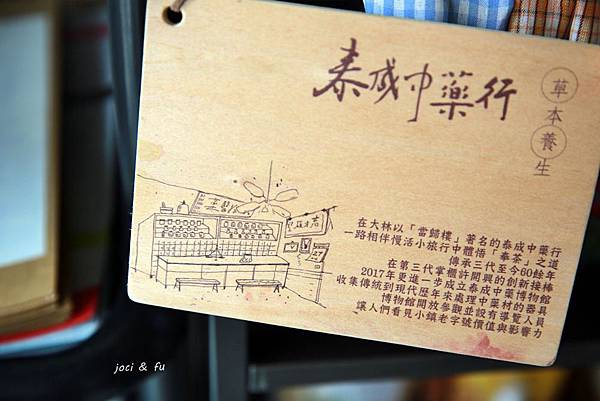 泰成中藥行
草本養生
在大林以「當歸樓」著名的泰成中藥行
一路相伴慢活小旅行中體悟「奉茶」之道
傳承三代至今60餘年
在第三代掌櫃許閔興的創新接棒
2017年更進一步成立泰成中藥博物館
收集傳統到現代歷年來處理中藥材的器具
博物館開放參觀並設有導覽人員
讓人們看見小鎮老字號價值與影響力
joci & fu